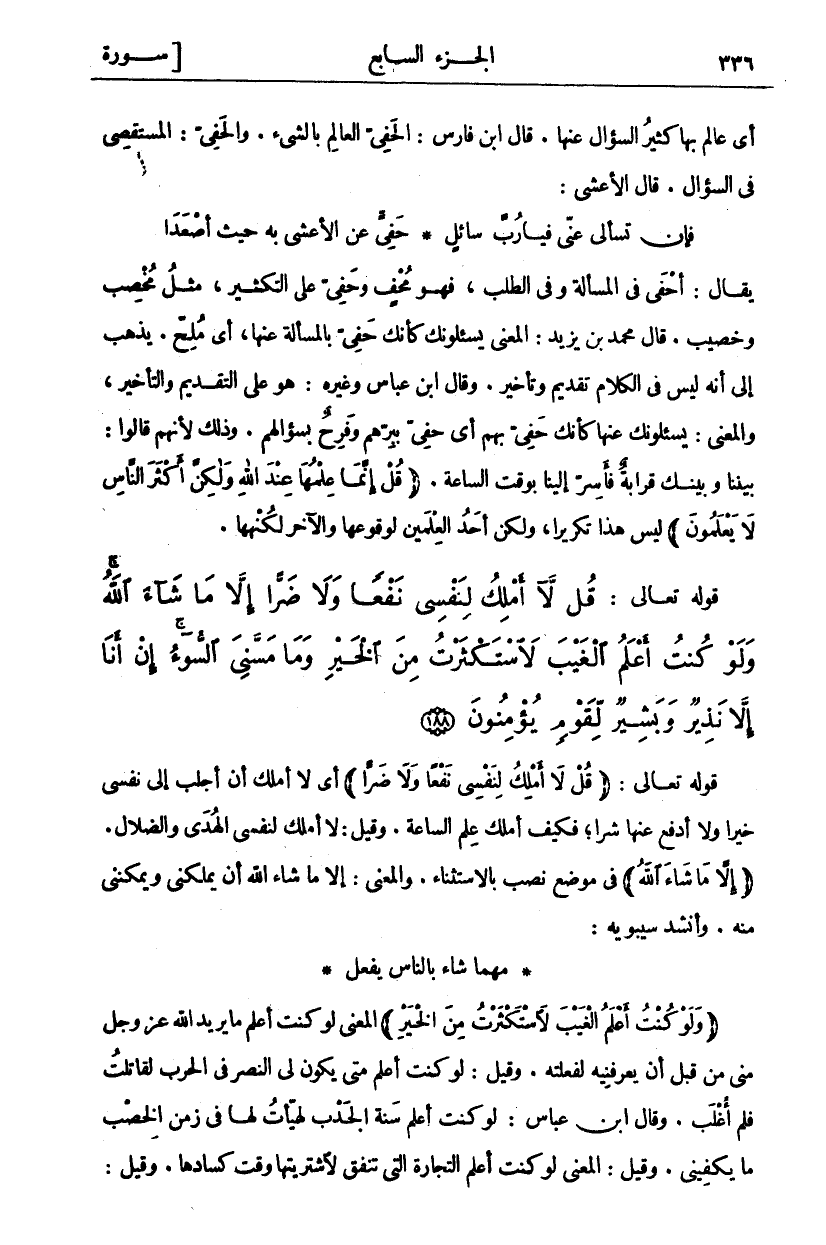 ٣٣٦ الجزء السابع [ سورة
أى عالم بها كثيرُ السؤال عنها . قال ابن فارس : الحَفِىّ العالم بالشىء . والحَفِىّ : المستقصِى
فى السؤال . قال الأعشى :
فإن تسألى عنّى فيارُبَّ سائلٍ * حَفِىٍّ عن الأعشى به حيث أصْعَدَا
يقال : أحْفَى فى المسألة وفى الطلب ، فهو مُحْفٍ وحَفِىّ على التكثير ، مثلُ مُخْصِب
وخصيب . قال محمد بن يزيد : المعنى يسئلونك كأنك حَفِىّ بالمسألة عنها، أى مُلِحّ . يذهب
إلى أنه ليس فى الكلام تقديم وتأخير . وقال ابن عباس وغيره : هو على التقديم والتأخير ،
والمعنى : يسئلونك عنها كأنك حَفِىّ بهم أى حفِىّ ببِرّهم وفَرِحٌ بسؤالهم . وذلك لأنهم قالوا :
بيننا وبينك قرابةٌ فأَسِرّ إلينا بوقت الساعة . ﴿ قُلْ إِنَّمَا عِلْمُهَا عِنْدَ اللهِ وَلَكِنَّ أَكْثَرَ النَّاسِ
لَا يَعْلَمُونَ ﴾ ليس هذا تكريرا، ولكن أحَدُ العِلْمين لوقوعها والآخر لكُنْهها .
قوله تعالى : قُل لَّآ أَمْلِكُ لِنَفْسِى نَفْعًا وَلَا ضَرًّا إِلَّا مَا شَآءَ ٱللَّهُ ۚ
وَلَوْ كُنتُ أَعْلَمُ ٱلْغَيْبَ لَٱسْتَكْثَرْتُ مِنَ ٱلْخَيْرِ وَمَا مَسَّنِىَ ٱلسُّوٓءُ ۚ إِنْ أَنَا
إِلَّا نَذِيرٌ وَبَشِيرٌ لِّقَوْمٍ يُؤْمِنُونَ ١٨٨
قوله تعالى : ﴿ قُلْ لَا أَمْلِكُ لِنَفْسِى نَفْعًا وَلَا ضَرًّا ﴾ أى لا أملك أن أجلب إلى نفسى
خيرا ولا أدفع عنها شرا؛ فكيف أملك عِلم الساعة . وقيل : لا أملك لنفسى الهُدَى والضلال .
﴿ إِلَّا مَا شَاءَ ٱللَّهُ ﴾ فى موضع نصب بالاستثناء . والمعنى : إلا ما شاء الله أن يملكنى ويمكننى
منه . وأنشد سيبويه :
* مهما شاء بالناس يفعل *
﴿ وَلَوْ كُنْتُ أَعْلَمُ الْغَيْبَ لَاسْتَكْثَرْتُ مِنَ الْخَيْرِ ﴾ المعنى لو كنت أعلم ما يريد الله عز وجل
منى من قبل أن يعرفنِيه لفعلته . وقيل : لو كنت أعلم متى يكون لى النصر فى الحرب لقاتلتُ
فلم أُغْلَب . وقال ابن عباس : لو كنت أعلم سَنة الجَدْب لهيّأتُ لها فى زمن الخِصْب
ما يكفينى . وقيل : المعنى لو كنت أعلم التجارة التى تنفق لاشتريتها وقت كسادها . وقيل :